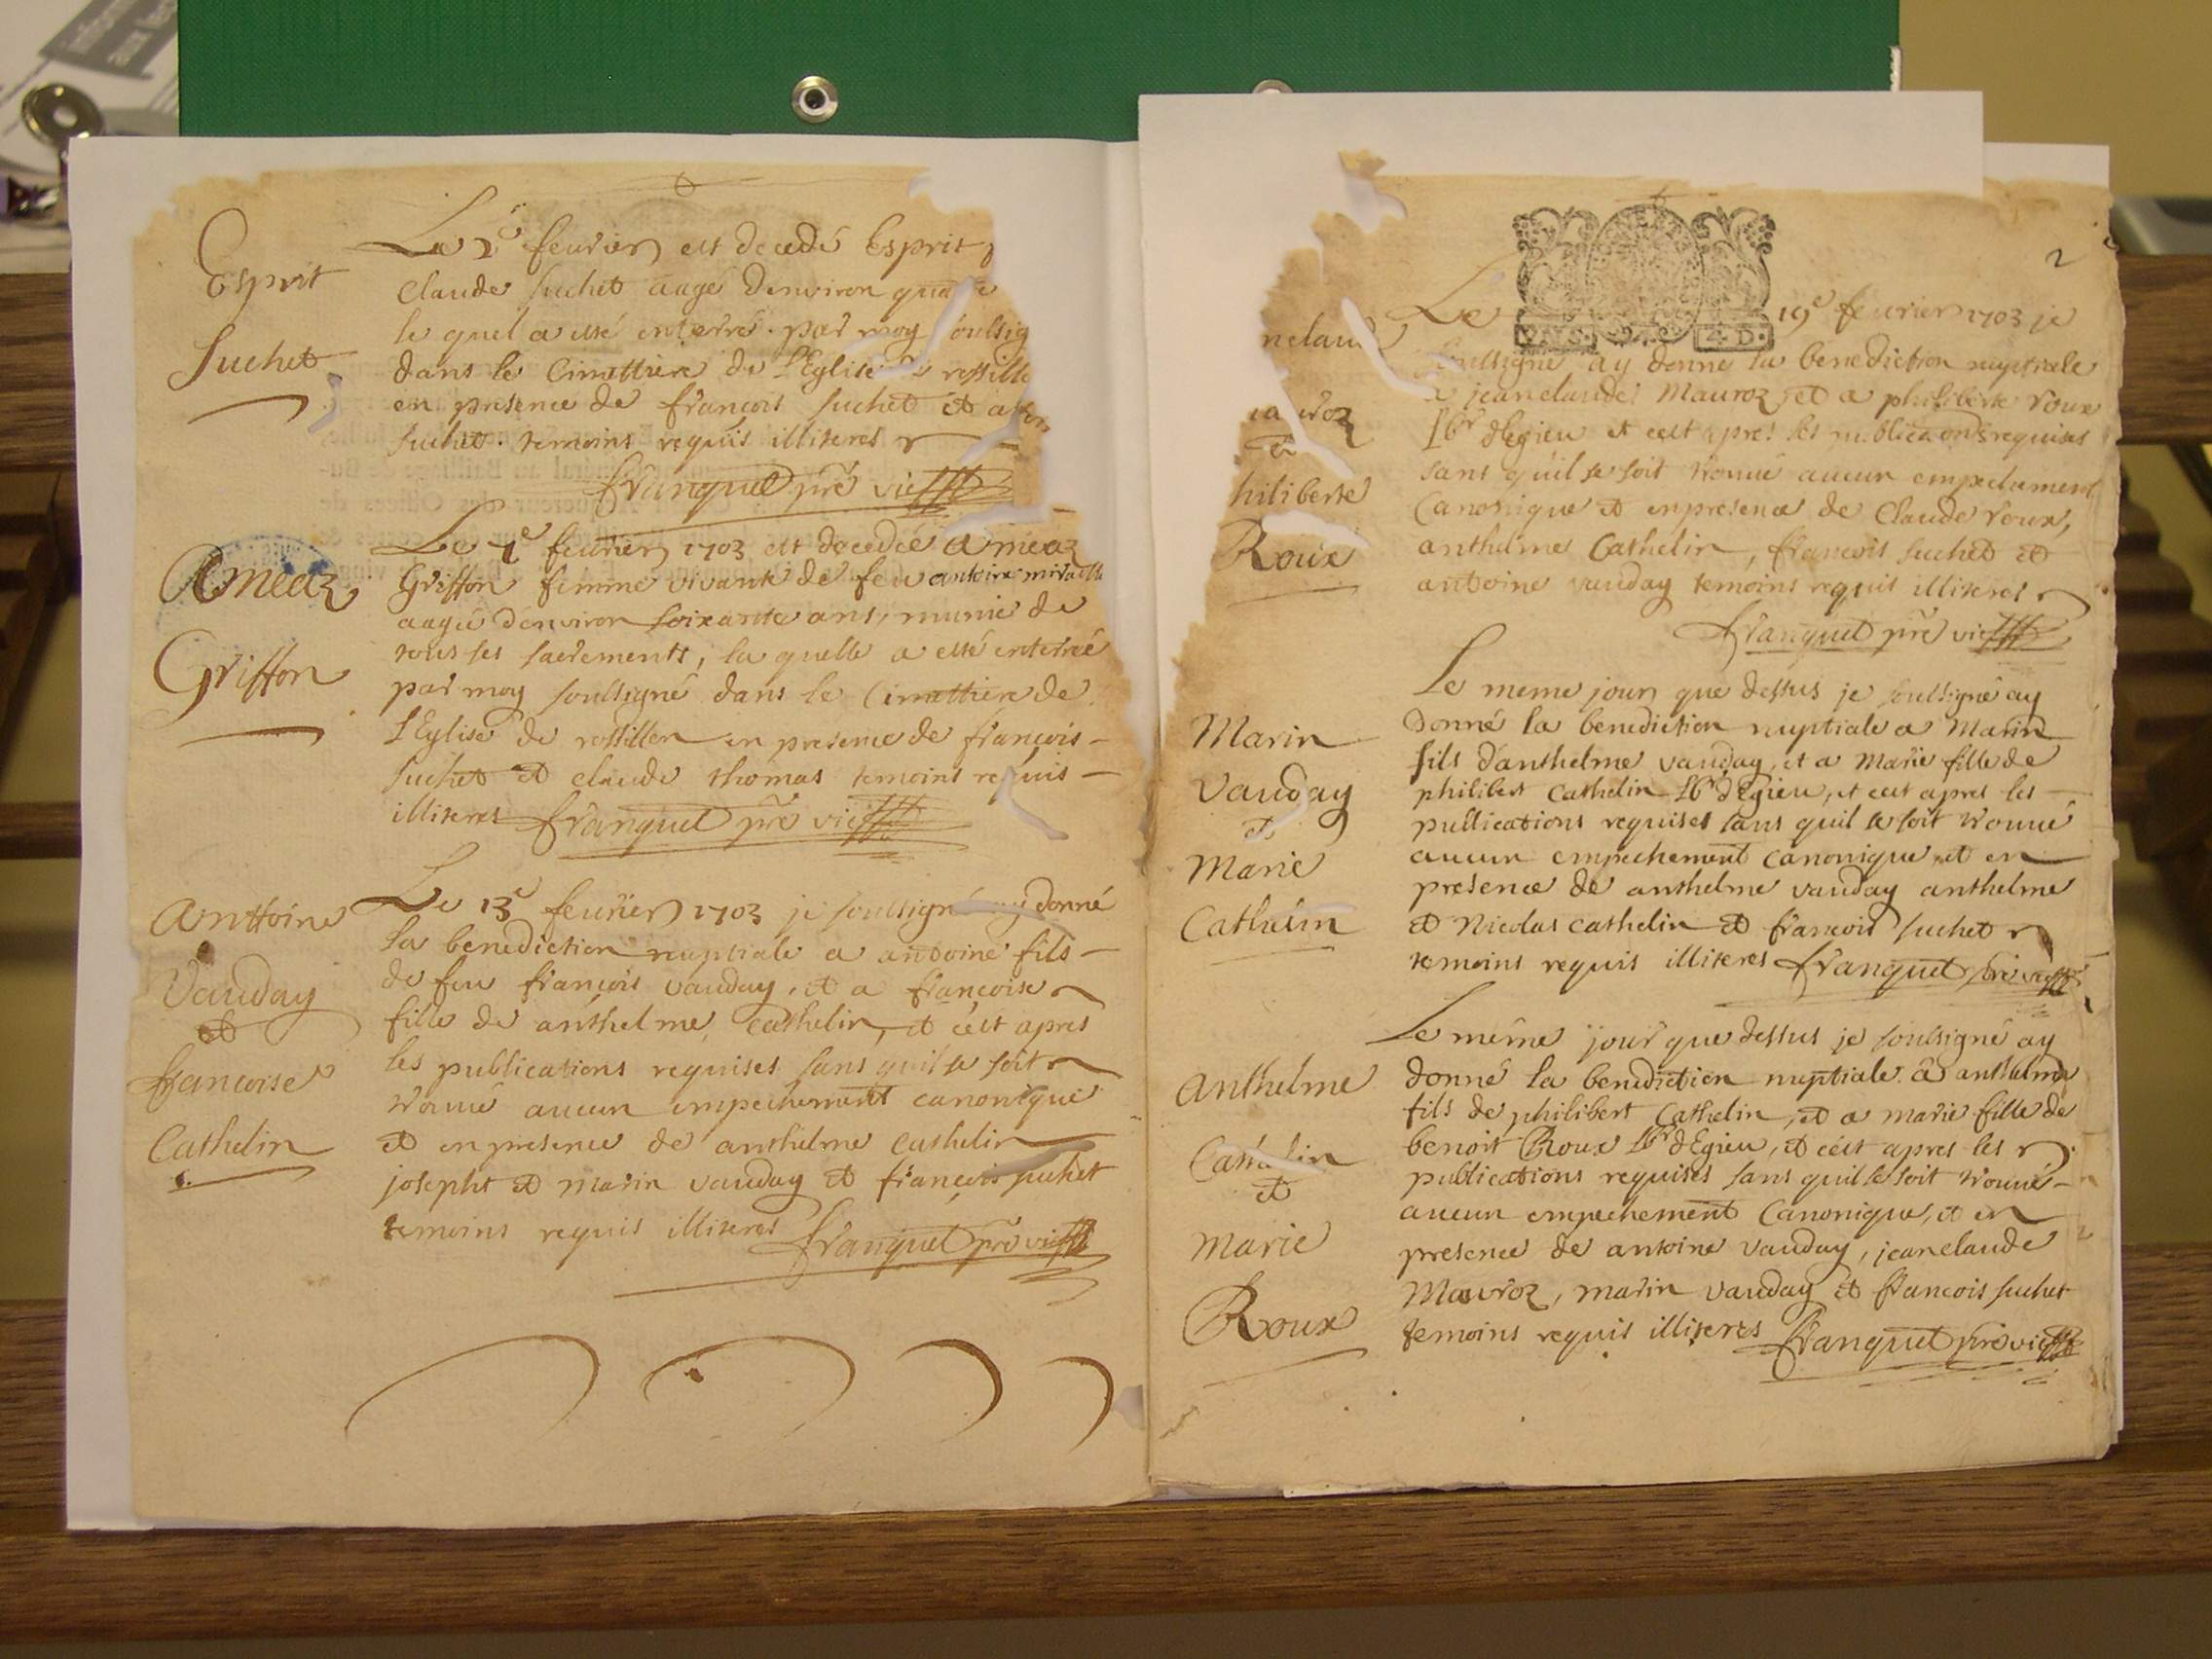 Esprit
Suchet
Le 2e feurier est decedé Esprit
Claude suchet aagé d'environ
le quel a esté enterré par moy soulsig
dans le Cimettiere de L'Eglise de rossille
en presence de françois suchet et
suchet temoins requis illiteres
franquet pre vic
Ameaz
Griffon
Le feurier 1703 est decedée Ameaz
Griffon femme vivante de feu antoine
aagée d'environ soixante ans, munie de
tous ses sacrements, la quelle a esté enterrée
par moy soulsigné dans le Cimettiere de
L'Eglise de rossillon en presence de françois
suchet et claude thomas temoins requis
illiteres franquet pre vic
Anttoine
Vauday
et
francoise
Cathelin
Le 13e feurier 1703 je soulsigné ay donné
la benediction nuptiale a antoine fils
de feu françois vauday, et a françoise
fille de anthelme Cathelin, et c'est apres
les publications requises sans quil se soit
trouué aucun empechement canonique
et en presence de anthelme cathelin
josepht et marin vauday et françois suchet
temoins requis illiteres franquet pre vic
2
4 D.
nclaud
auroz
et
hiliberte
Roux
Le 19e feurier 1703 je
soulsigné ay donné la benediction nuptiale
a jeanclaude Mauroz et a philiberte roux
lbr d'Egieu et c'est apres les publications requises
sans qu'il se soit trouué aucun empechement
Canonique et en presence de Claude roux,
anthelme Cathelin, françois suchet et
antoine vauday temoins requis illiteres
franquet pre vic
Marin
Vauday
et
Marie
Cathelin
Le meme jour que dessus je soulsigné ay
Donné la benediction nuptiale a Marin
fils d'anthelme vauday, et a Marie fille de
philibert Cathelin lbr d'Egieu, et c'est apres les
publications requises sans quil se soit trouué
aucun empechement canonique, et en
presence de anthelme vauday anthelme
et Nicolas cathelin et francois suchet
temoins requis illiteres franquet pre vic
Anthelme
Cathelin
et
Marie
Roux
Le même jour que dessus je soulsigné ay
donné la benediction nuptiale a anthelme
fils de philibert Cathelin, et a marie fille de
benoit Roux lbr d'Egieu, et c'est apres les
publications requises sans quil se soit trouué
aucun empechement Canonique, et en
presence de antoine vauday, jeanclaude
Mauroz, marin vauday et francois suchet
temoins requis illiteres franquet pre vic